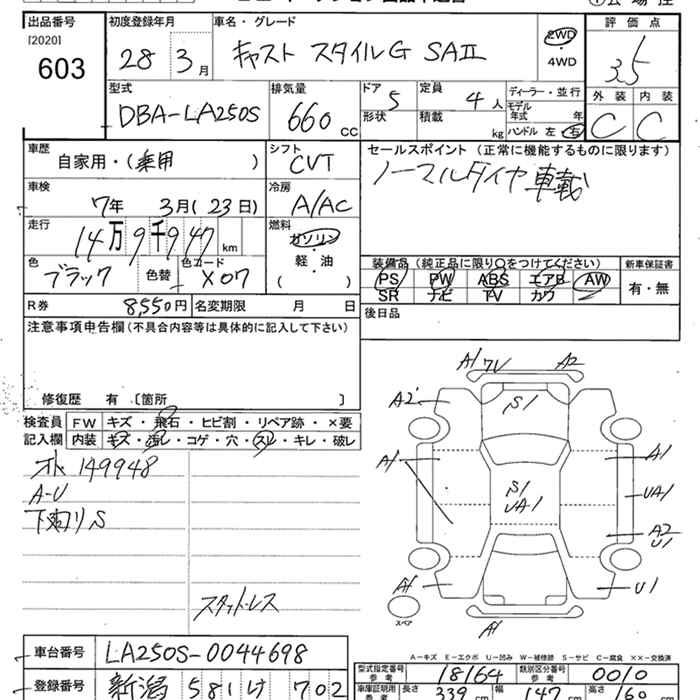 出品番号 初度登録年月 車名・グレード 評価点
[2020]
603 28年3月 キャスト スタイルG SAⅡ 2WD ・ 4WD 3.5
型式 排気量 ドア 5 定員 4人 ディーラー・並行 外装 内装
DBA-LA250S 660cc 形状 積載 kg モデル年式 年 C C
ハンドル 左 右
車歴 シフト セールスポイント (正常に機能するものに限ります)
自家用・(乗用) CVT ノーマルタイヤ車載
車検 冷房
7年 3月(23日) A/AC
走行 燃料
14万9千947km ガソリン
色 色替 色コード 軽・油 装備品 (純正品に限り〇をつけてください) 新車保証書
ブラック X07 ( ) PS PW ABS エアB AW 有・無
SR ナビ TV カワ
R券 8,550円 名変期限 月 日 後日品
注意事項申告欄(不具合内容等は具体的に記入して下さい)
修復歴 有 〔箇所 〕
検査員 FW キズ・飛石・ヒビ割・リペア跡・×要
記入欄 内装 キズ・汚レ・コゲ・穴・スレ・キレ・破レ
149948
A-U
下廻りS
スタットレス
A1 7V A2
A2 S1
A1 A1
S1 UA1
UA1 A2
U1
A1 U1
A1
スペア
A-キズ E-エクボ U-凹み W-補修跡 S-サビ C-腐食 ××-交換済
車台番号 LA250S-0044698 型式指定番号 参考 18164 類別区分番号 参考 0010
登録番号 新潟 581 け 702 車庫証明用 参考 長さ 339cm 幅 147cm 高さ